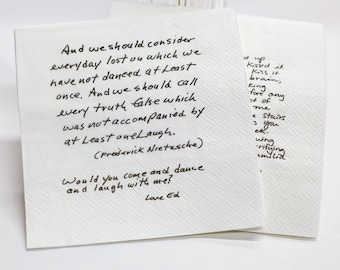 And we should consider
everyday lost on which we
have not danced at Least
once. And we should call
every truth false which
was not accompanied by
at Least one Laugh.
(Frederick Nietzsche)
Would you come and dance
and laugh with me?
Love Ed
up
it
Kiss it
brain,
king
any
of
me
stairs
you